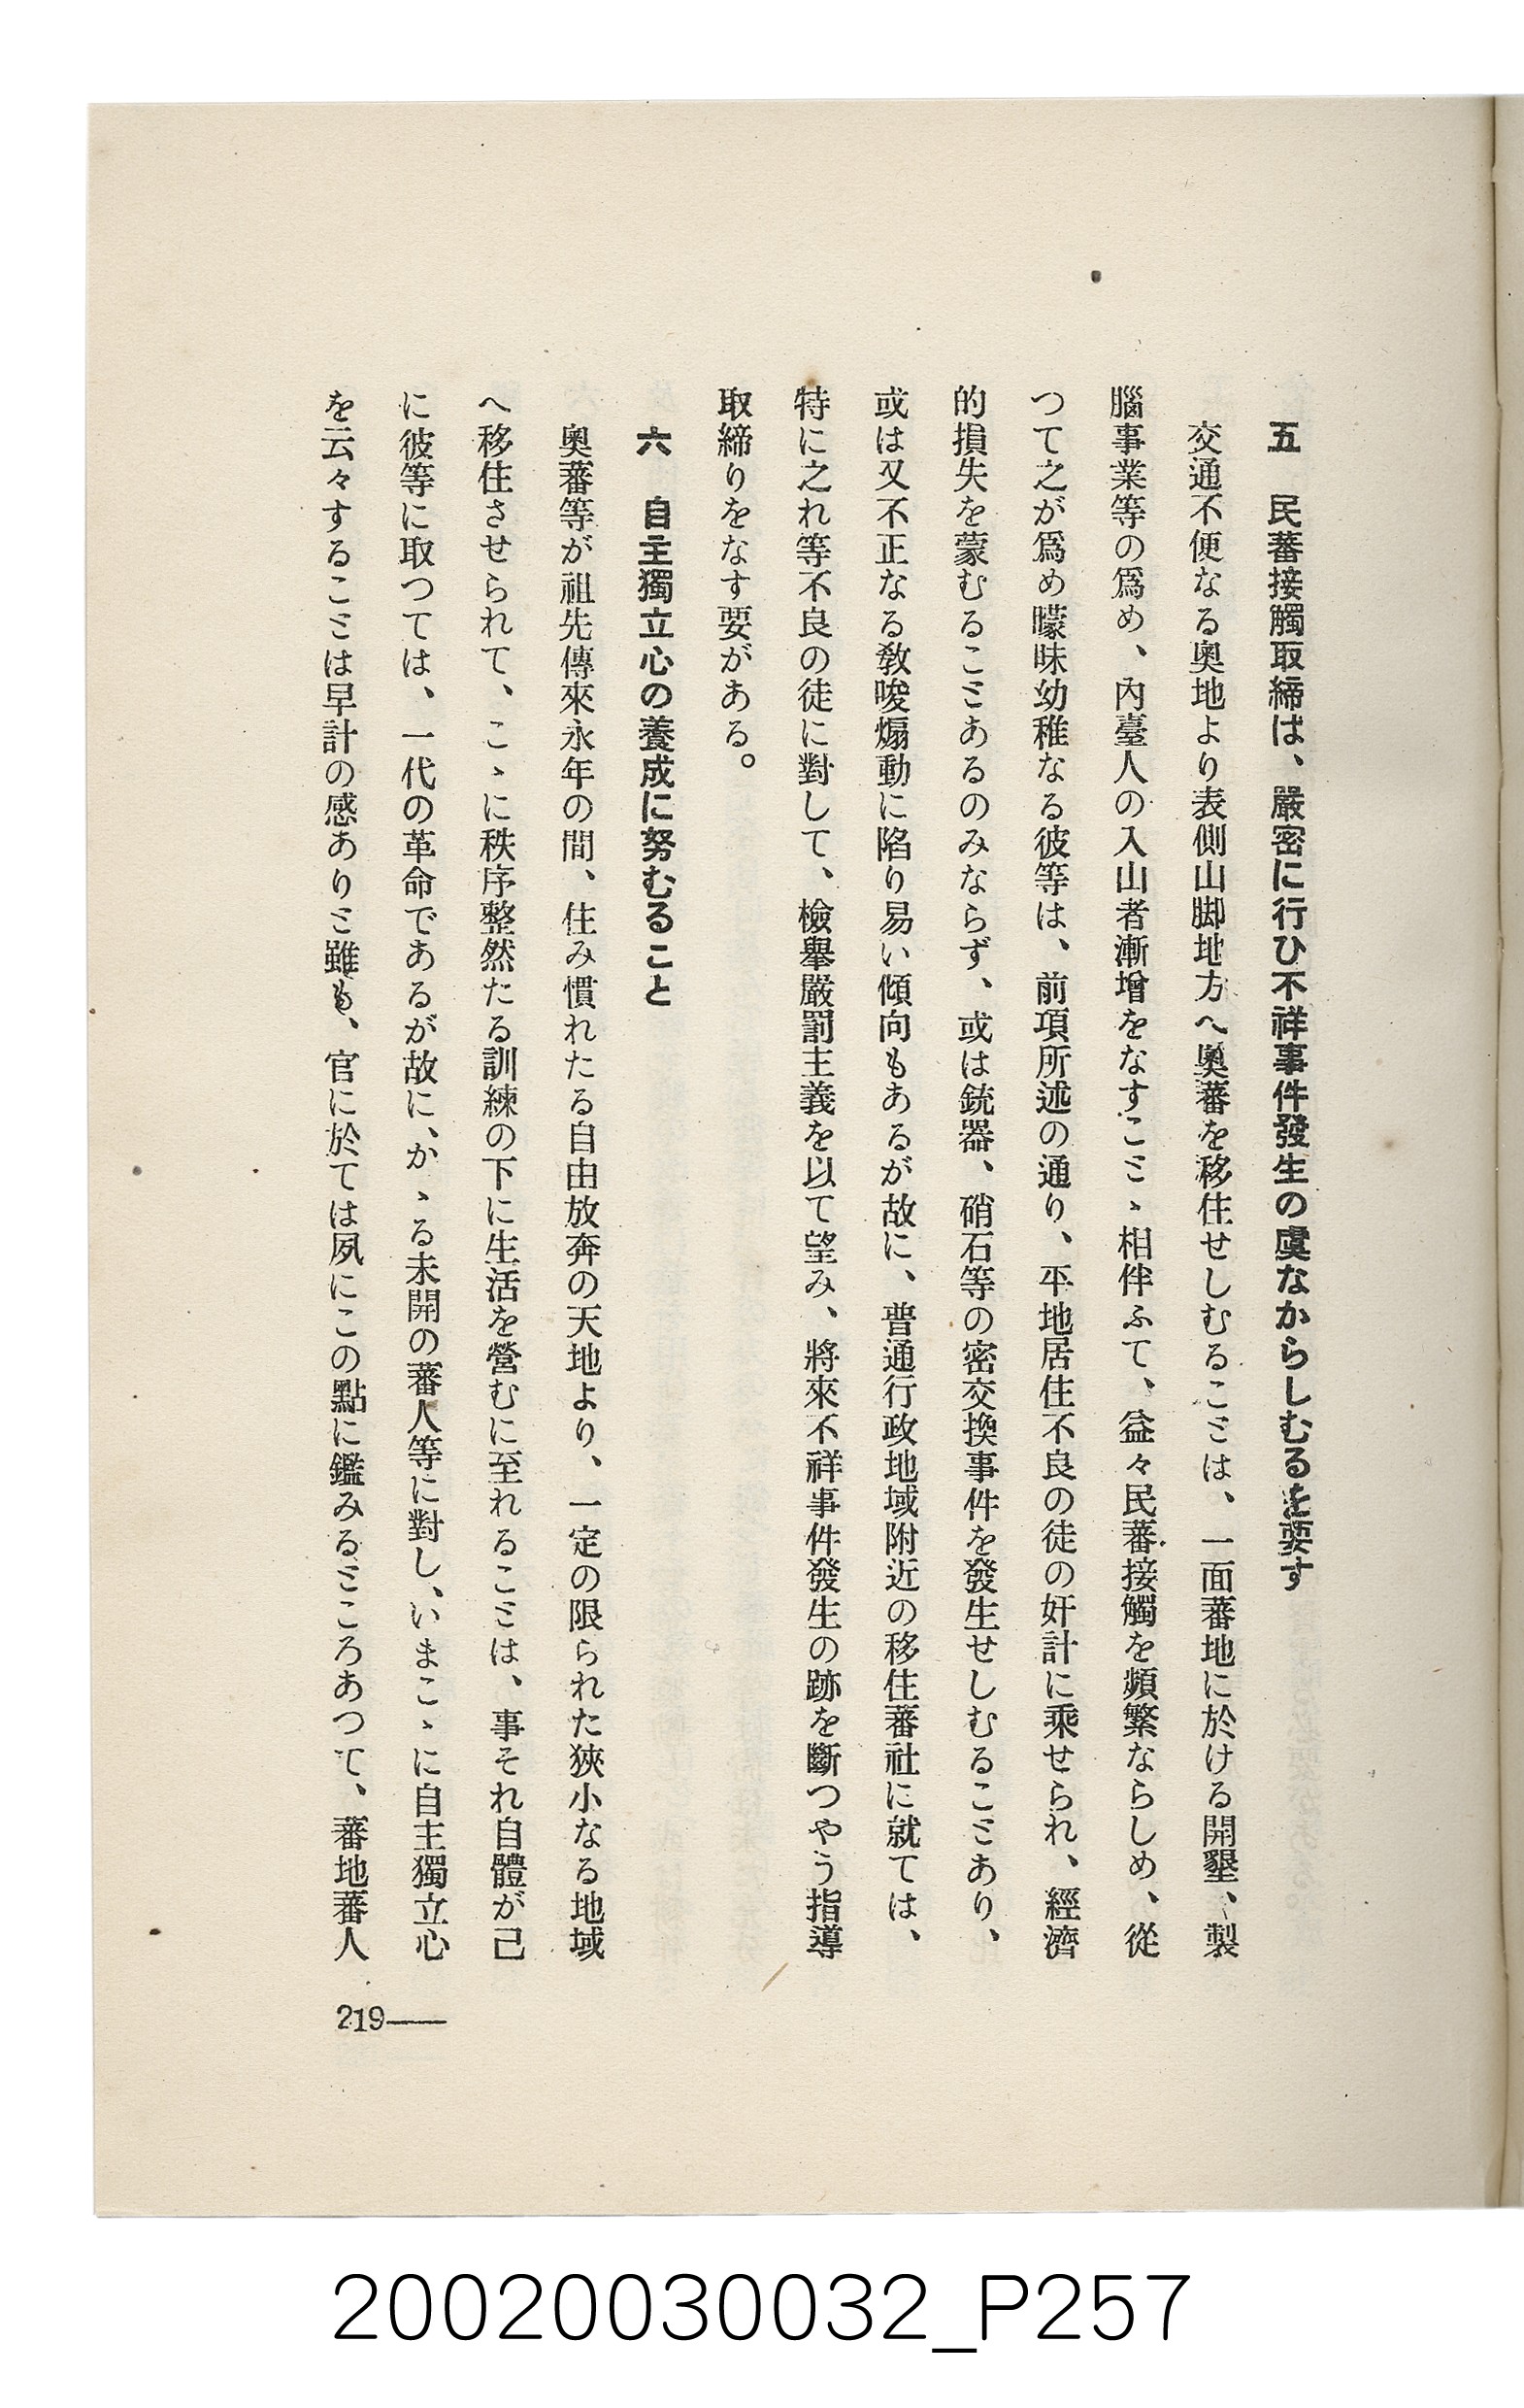 五　民蕃接觸取締は、嚴密に行ひ不祥事件發生の虞なからしむるを要す
交通不便なる奧地より表側山脚地方へ奧蕃を移住せしむることは、一面蕃地に於ける開墾、製
腦事業等の爲め、內臺人の入山者漸增をなすことゝ相伴ふて、益々民蕃接觸を頻繁ならしめ、從
つて之が爲め曚昧幼稚なる彼等は、前項所述の通り、平地居住不良の徒の奸計に乘せられ、經濟
的損失を蒙むることあるのみならず、或は銃器、硝石等の密交換事件を發生せしむることあり、
或は又不正なる敎唆煽動に陷り易い傾向もあるが故に、普通行政地域附近の移住蕃社に就ては、
特に之れ等不良の徒に對して、檢擧嚴罰主義を以て望み、將來不祥事件發生の跡を斷つやう指導
取締りをなす要がある。
六　自主獨立心の養成に努むること
奧蕃等が祖先傳來永年の間、住み慣れたる自由放奔の天地より、一定の限られた狹小なる地域
へ移住させられて、こゝに秩序整然たる訓練の下に生活を營むに至れることは、事それ自體が己
に彼等に取つては、一代の革命であるが故に、かゝる未開の蕃人等に對し、いまこゝに自主獨立心
を云々することは早計の感ありと雖も、官に於ては夙にこの點に鑑みるところあつて、蕃地蕃人
219——
20020030032_P257